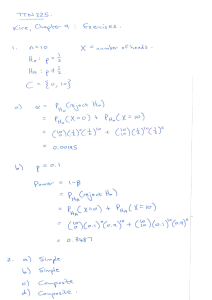 TTM 325
Rice, Chapter 9 : Exercises.
1. n = 10 X = number of heads.
H₀: p = 1/2
Hₐ: p ≠ 1/2
C = {0, 10}
a) α = P_H₀(reject H₀)
= P_H₀(X=0) + P_H₀(X=10)
= (10 0)(1/2)⁰(1/2)¹⁰ + (10 10)(1/2)¹⁰(1/2)⁰
= 0.00195
b) p = 0.1
Power = 1-β
= P_Hₐ(reject H₀)
= P_Hₐ(X=0) + P_Hₐ(X=10)
= (10 0)(0.1)⁰(0.9)¹⁰ + (10 10)(0.1)¹⁰(0.9)⁰
= 0.3487
2. a) Simple
b) Simple
c) Composite
d) Composite.